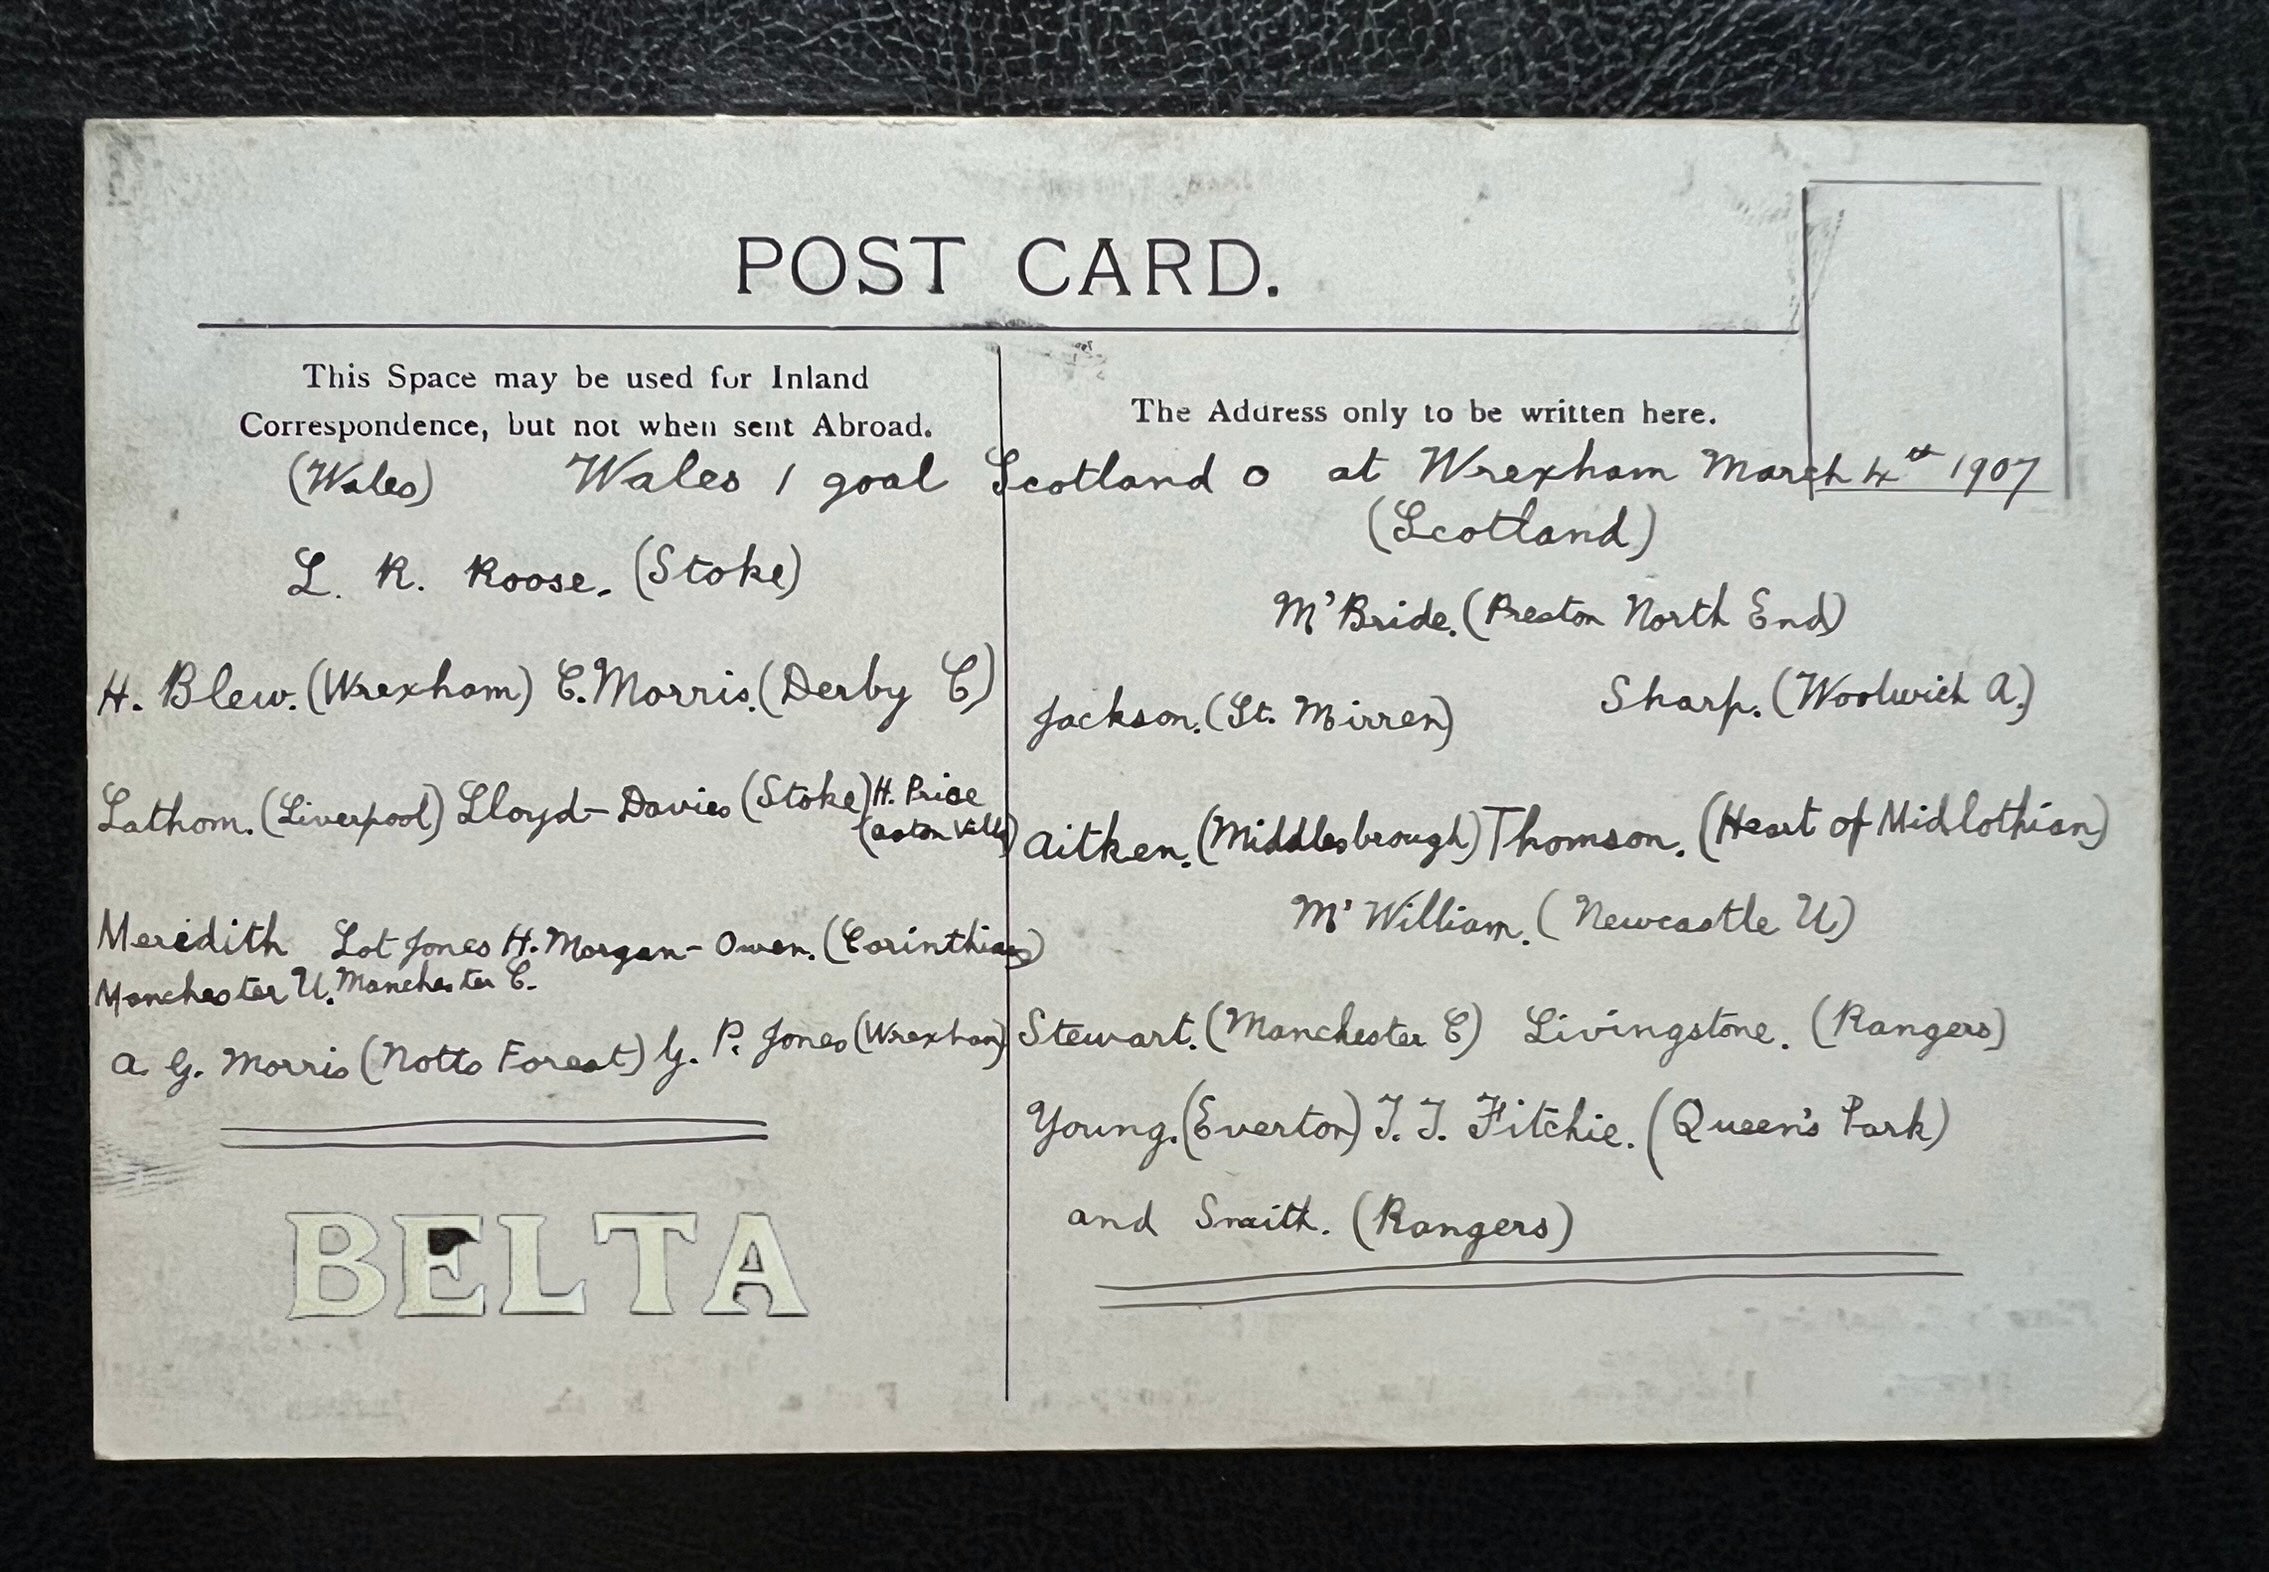 POST CARD.
This Space may be used for Inland
Correspondence, but not when sent Abroad.
The Address only to be written here.
(Wales) Wales 1 goal Scotland 0 at Wrexham March 4th 1907
L. R. Roose. (Stoke)
H. Blew. (Wrexham) C. Morris. (Derby C)
Lathom. (Liverpool) Lloyd-Davies (Stoke) H. Price
(Aston Villa)
Meredith Lot Jones H. Morgan-Owen. (Corinthians)
Manchester U. Manchester C.
A. G. Morris (Notts Forest) G. P. Jones (Wrexham)
BELTA
(Scotland)
M'Bride. (Preston North End)
Jackson. (St. Mirren) Sharp. (Woolwich A.)
Aitken. (Middlesbrough) Thomson. (Heart of Midlothian)
M'William. (Newcastle U)
Stewart. (Manchester C) Livingstone. (Rangers)
Young. (Everton) T. T. Fitchie. (Queen's Park)
and Smith. (Rangers)